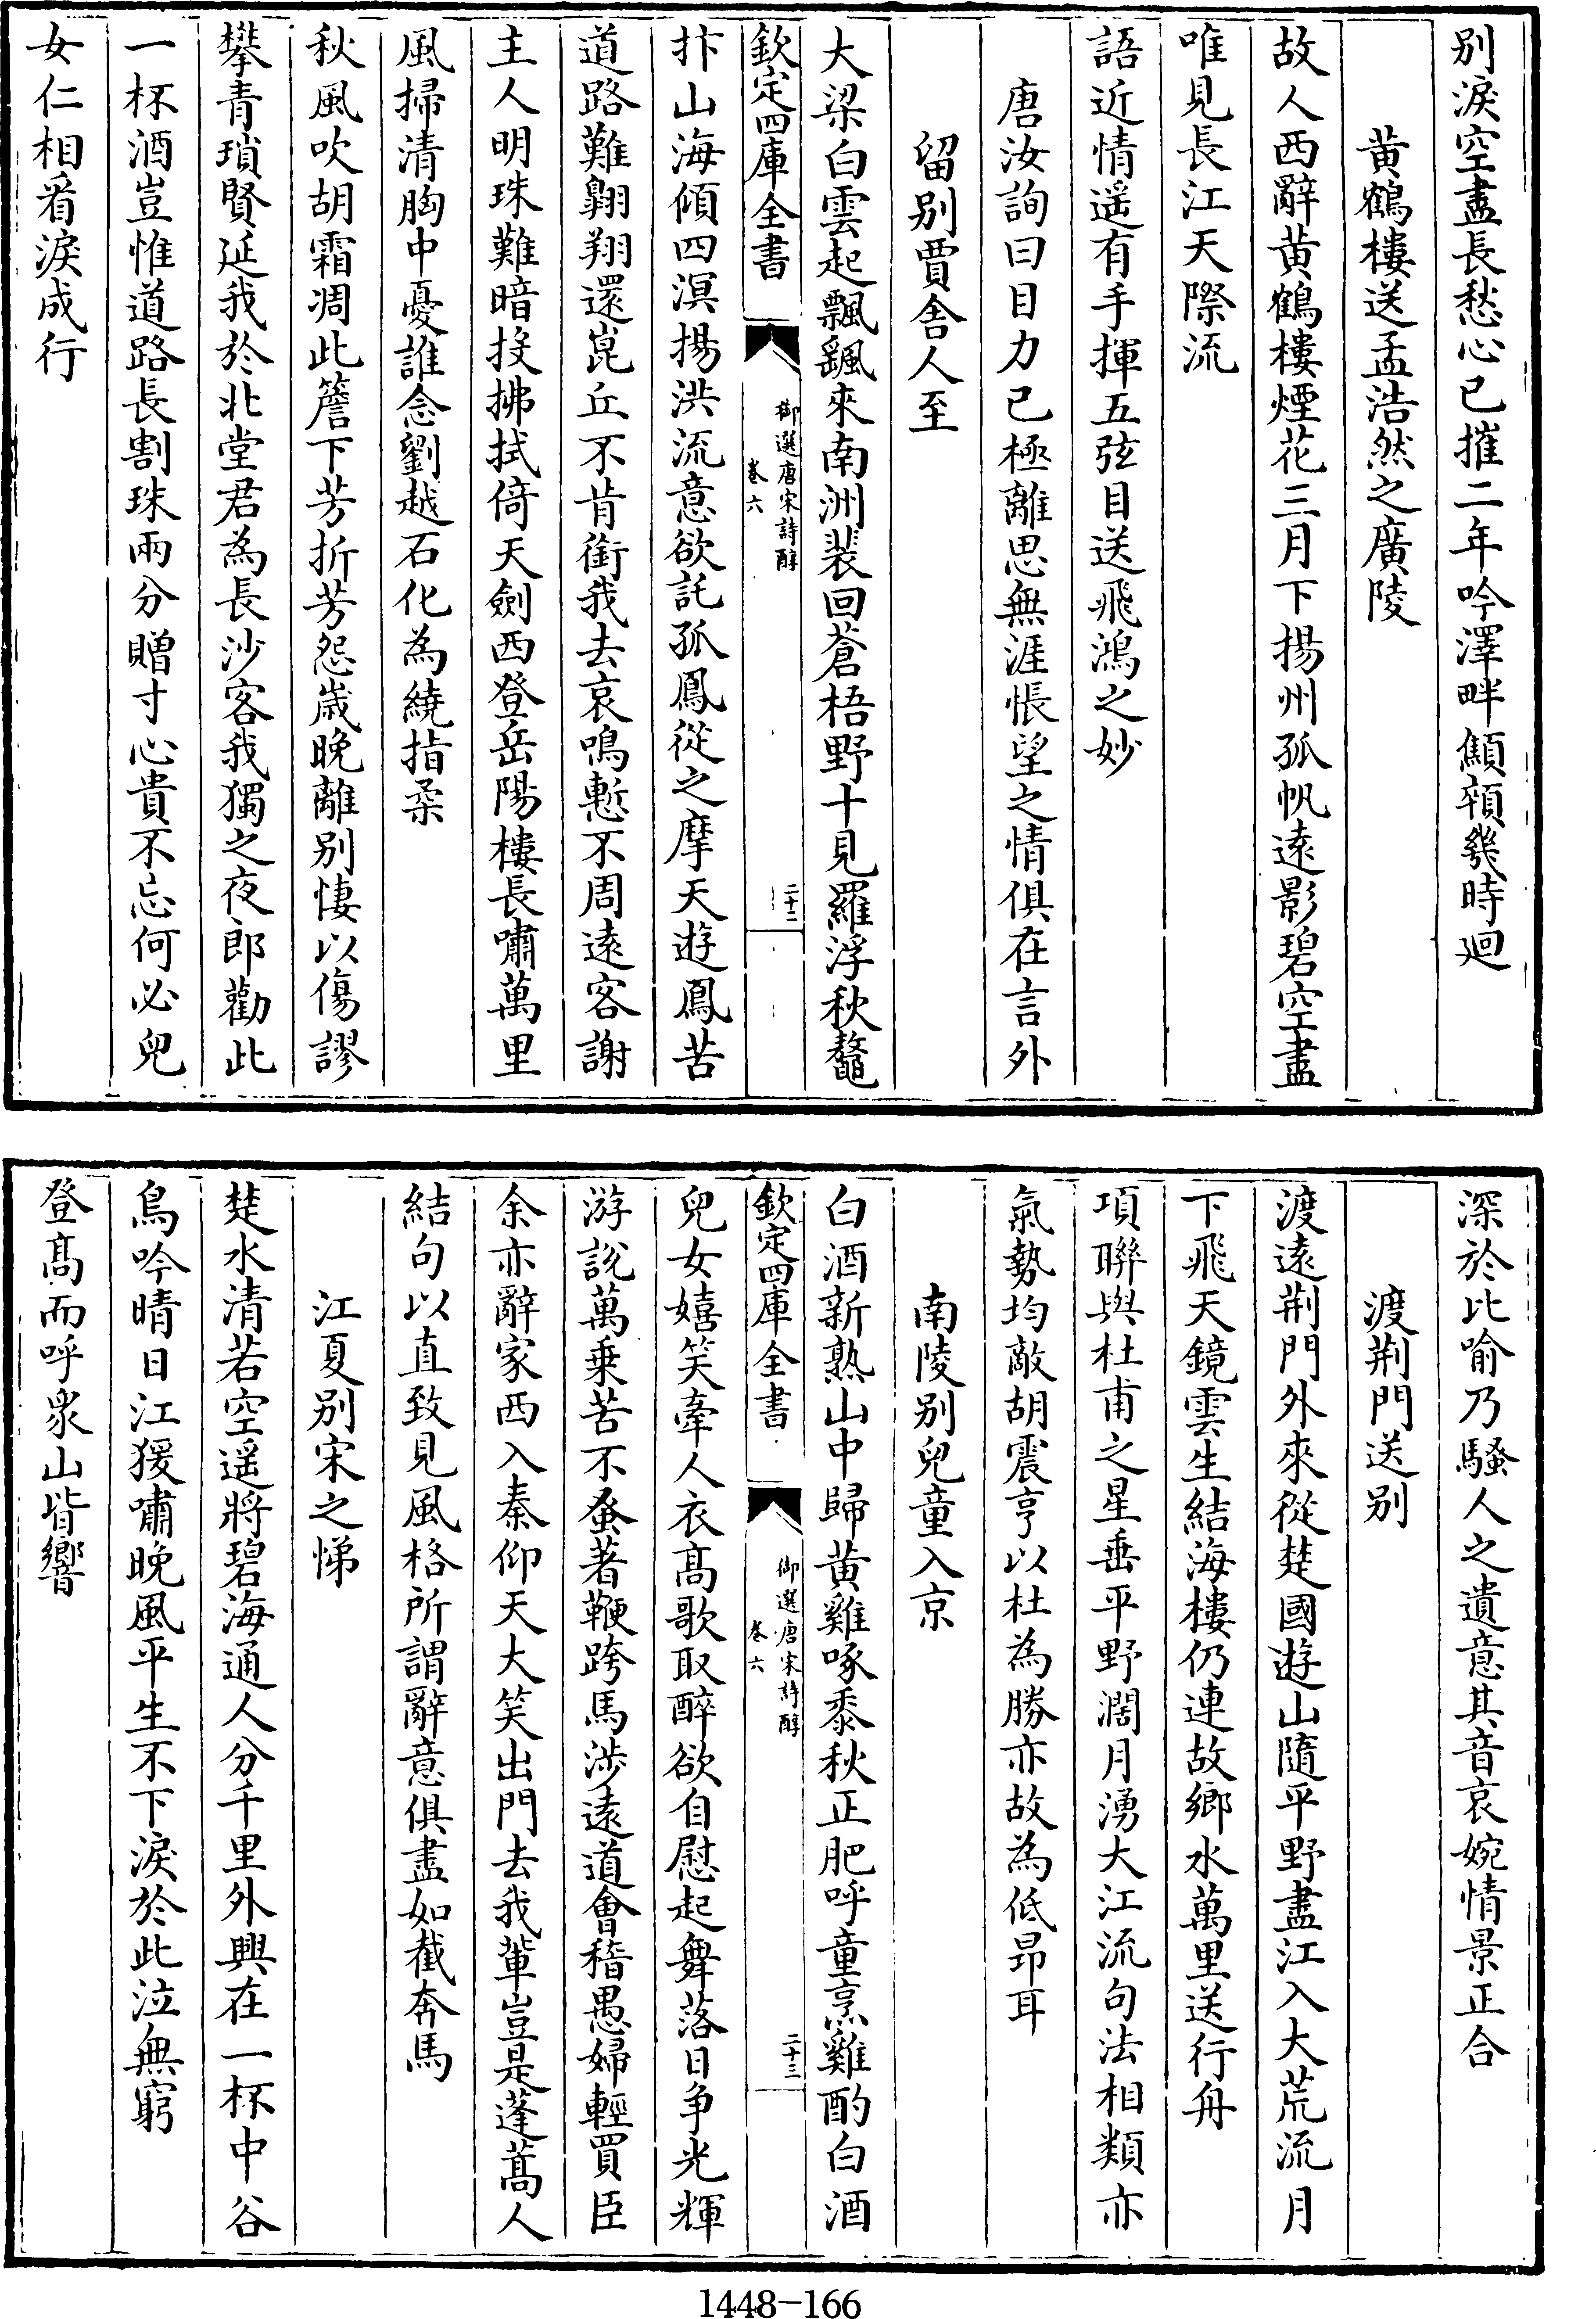 别淚空盡長愁心已摧二年吟澤畔顦顇幾時廻
黄鶴樓送孟浩然之廣陵
故人西辭黄鶴樓煙花三月下揚州孤帆遠影碧空盡
唯見長江天際流
語近情遥有手揮五弦目送飛鴻之妙
唐汝詢曰目力已極離思無涯悵望之情俱在言外
留别賈舎人至
大梁白雲起飄飖來南洲裴回蒼梧野十見羅浮秋鼇
欽定四庫全書
御選唐宋詩醇
卷六
二十二
抃山海傾四溟揚洪流意欲託孤鳳從之摩天遊鳳苦
道路難翺翔還崑丘不肯銜我去哀鳴慙不周遠客謝
主人明珠難暗投拂拭倚天劍西登岳陽樓長嘯萬里
風掃清胸中憂誰念劉越石化為繞指柔
秋風吹胡霜凋此簷下芳折芳怨歲晚離别悽以傷謬
攀青瑣賢延我於北堂君為長沙客我獨之夜郎勸此
一杯酒豈惟道路長割珠兩分贈寸心貴不忘何必兒
女仁相看淚成行
深於比喻乃騷人之遺意其音哀婉情景正合
渡荆門送别
渡遠荆門外來從楚國遊山隨平野盡江入大荒流月
下飛天鏡雲生結海樓仍連故鄉水萬里送行舟
項聯與杜甫之星垂平野濶月湧大江流句法相類亦
氣勢均敵胡震亨以杜為勝亦故為低昂耳
南陵别兒童入京
白酒新熟山中歸黄雞啄黍秋正肥呼童烹雞酌白酒
欽定四庫全書
御選唐宋詩醇
卷六
二十三
兒女嬉笑牽人衣髙歌取醉欲自慰起舞落日争光輝
游說萬乗苦不蚤著鞭跨馬涉遠道會稽愚婦輕買臣
余亦辭家西入秦仰天大笑出門去我輩豈是蓬蒿人
結句以直致見風格所謂辭意俱盡如截奔馬
江夏别宋之悌
楚水清若空遥將碧海通人分千里外興在一杯中谷
鳥吟晴日江猨嘯晚風平生不下淚於此泣無窮
登髙而呼衆山皆響
1448-166